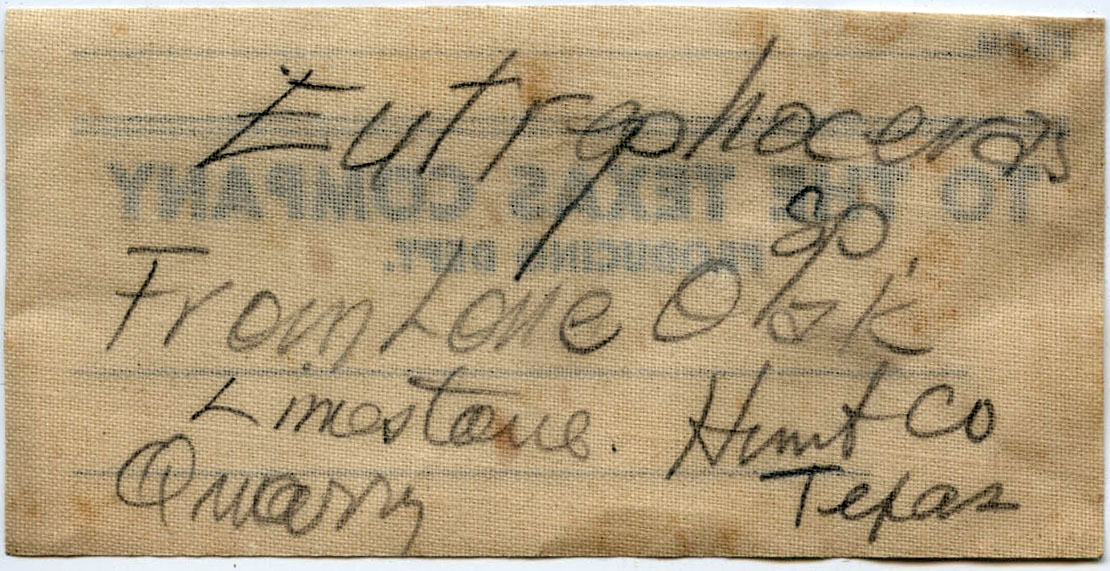 Eutrephoceras
TO THE TEXAS COMPANY
sp.
PRODUCING DEPT.
From Lone Oak
Limestone. Hunt Co
Quarry Texas